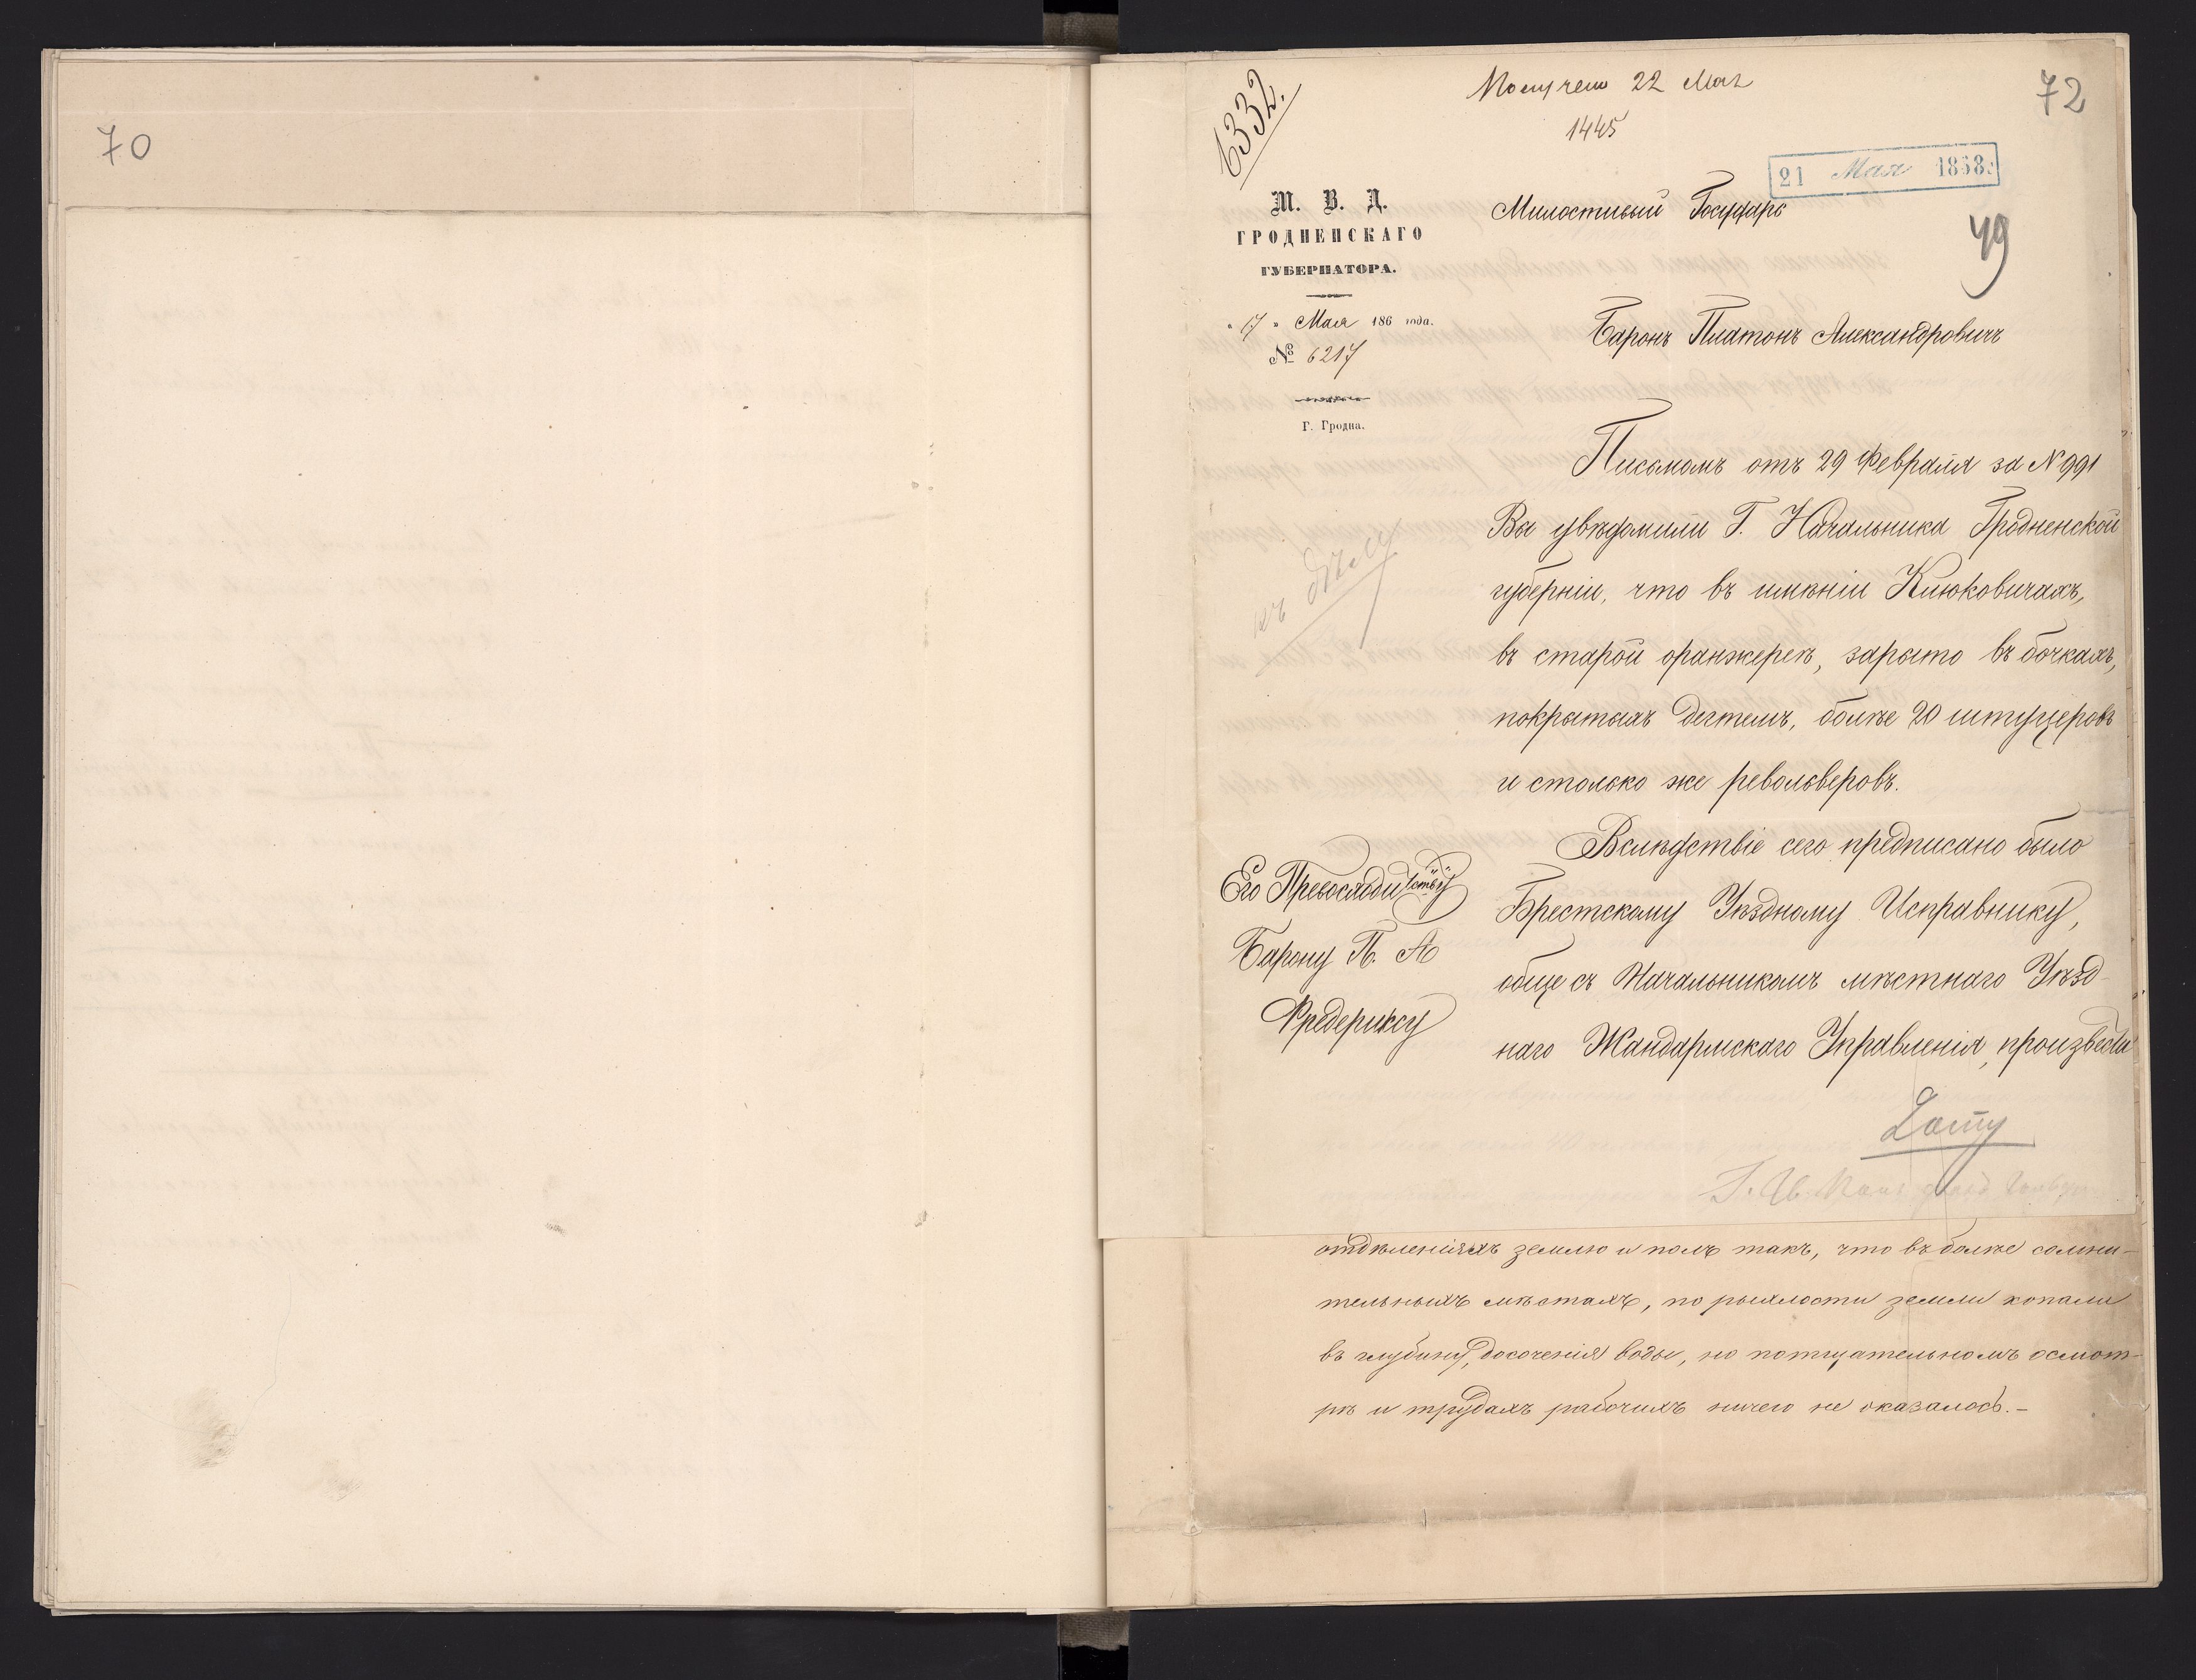 70
6332.
Получено 22 Мая
1445
72
21 Мая 1868 г.
49
М. В. Д.
ГРОДНЕНСКАГО
ГУБЕРНАТОРА.
" 17 " Мая 186 года.
№ 6217
Г. Гродна.
къ дѣлу
Его Превосходительству
Барону П. А
Фредериксу
Милостивый Государь
Баронъ Платонъ Александровичъ
Письмомъ отъ 29 Февраля за № 991
Вы увѣдомили Г. Начальника Гродненской
губерніи, что въ имѣніи Клюковичахъ,
въ старой оранжереѣ, зарыто въ бочкахъ,
покрытыхъ дегтемъ, болѣе 20 штуцеровъ
и столько же револьверовъ.
Вслѣдствіе сего предписано было
Брестскому Уѣздному Исправнику,
обще съ Начальникомъ мѣстнаго Уѣзд-
наго Жандармскаго Управленія, произвести
отдѣленіяхъ землю и полъ такъ, что въ болѣе сомни-
тельныхъ мѣстахъ, по рыхлости земли копали
въ глубину, досоченія воды, но потщательномъ осмот-
рѣ и трудахъ рабочихъ ничего не оказалось.-